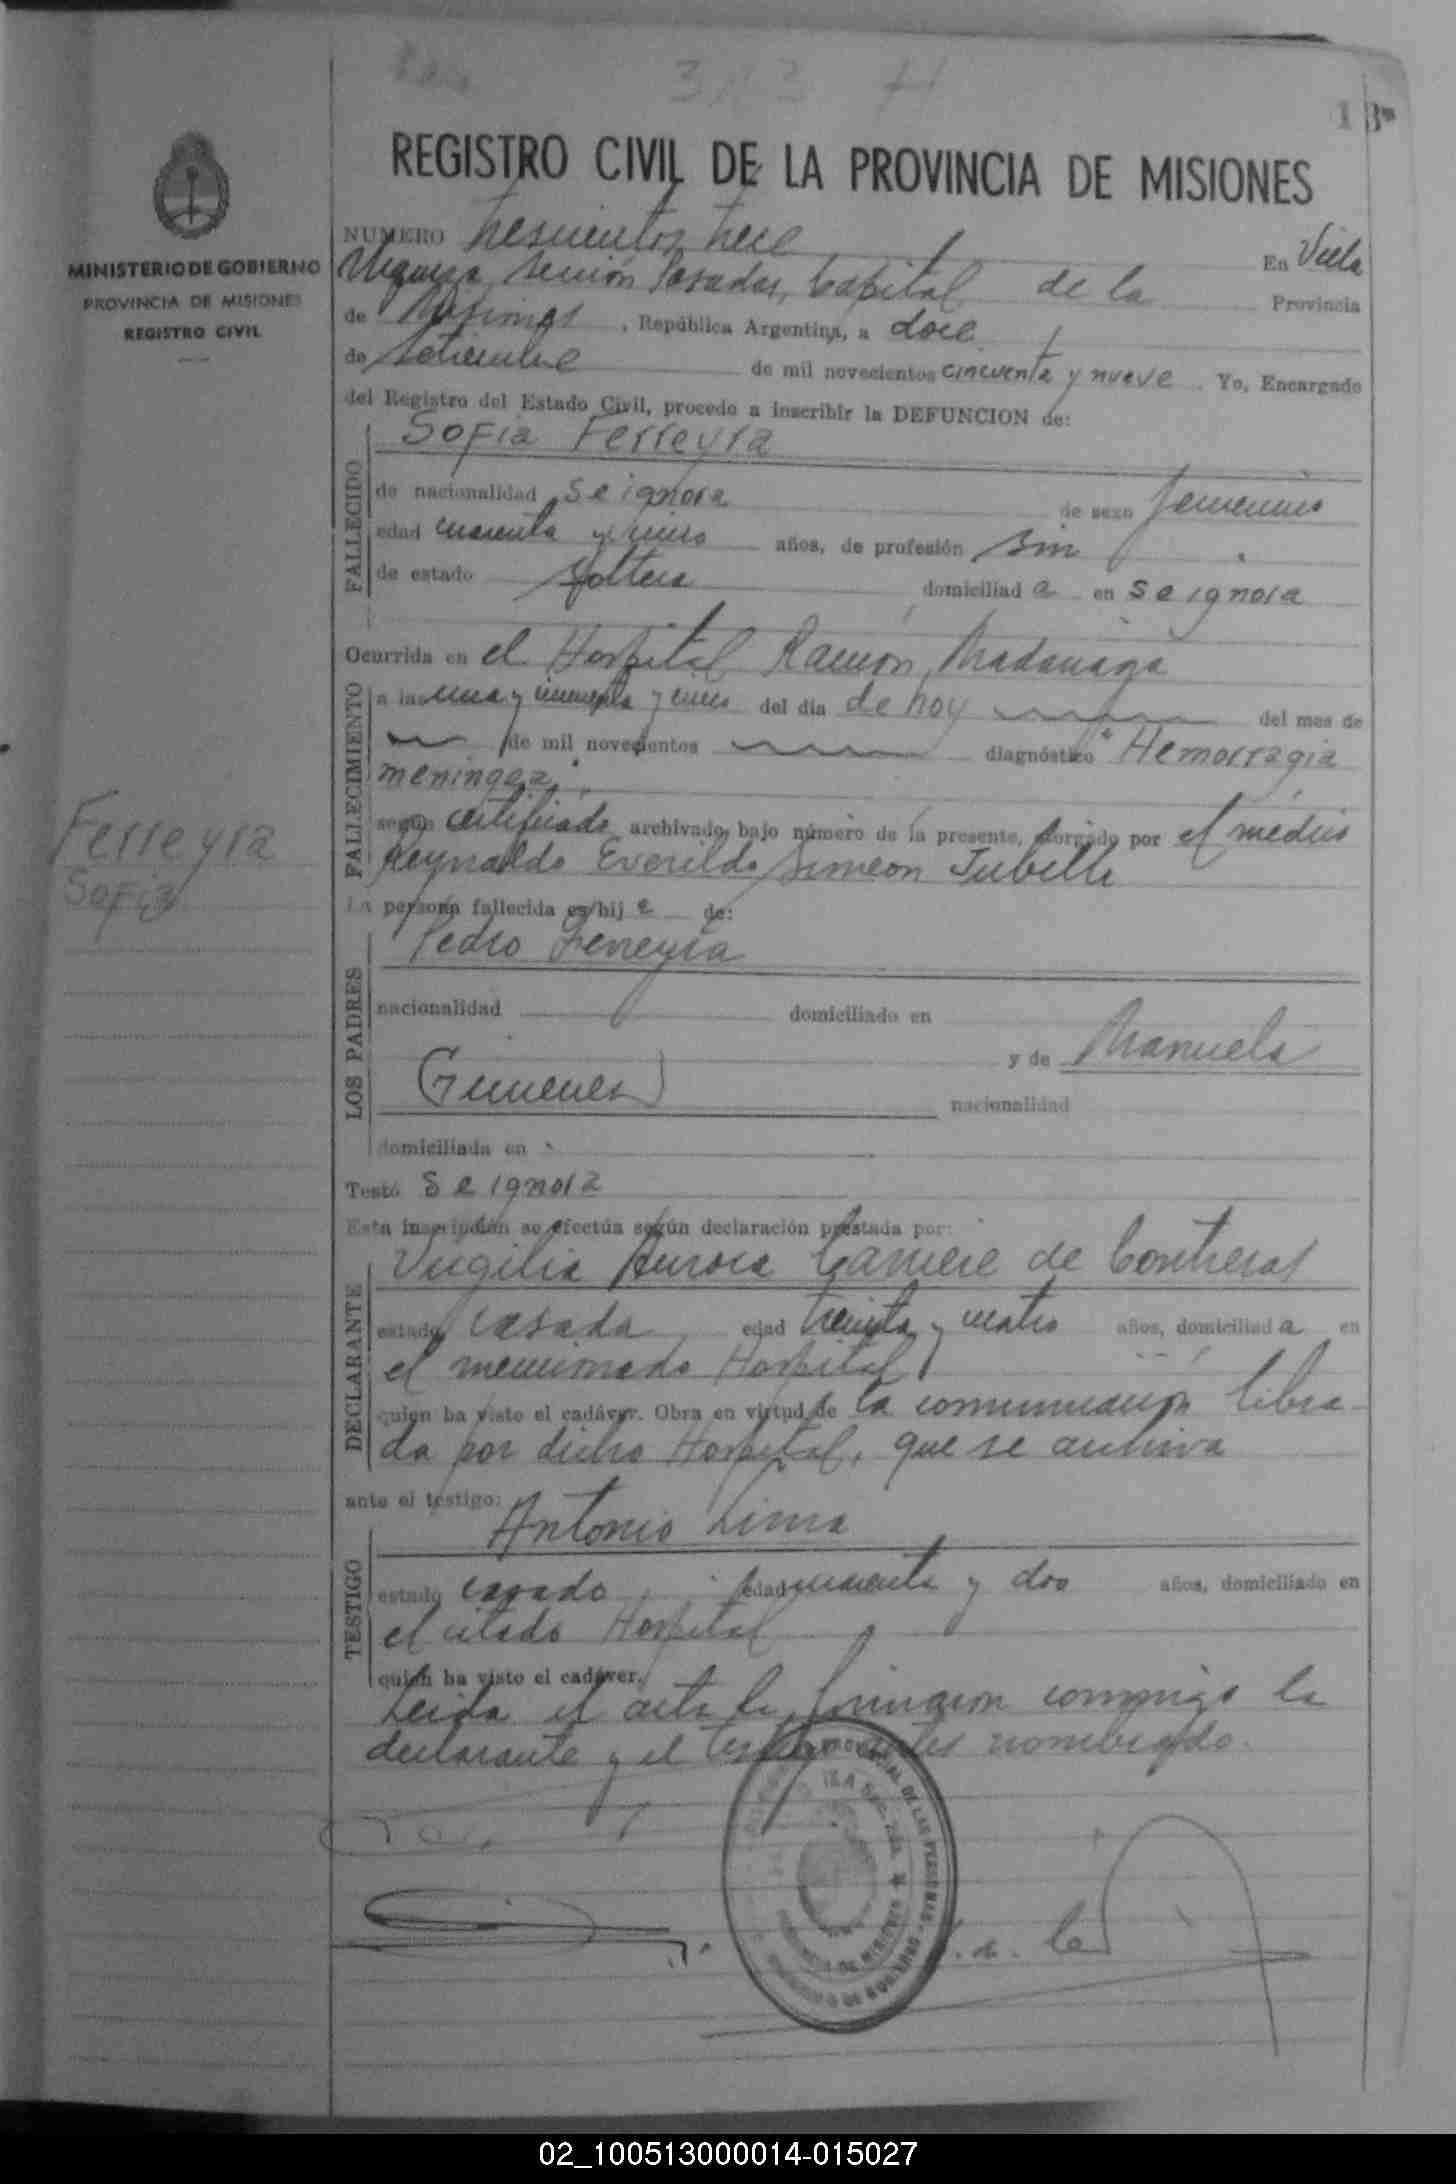 313 H
REGISTRO CIVIL DE LA PROVINCIA DE MISIONES
MINISTERIO DE GOBIERNO
PROVINCIA DE MISIONES
REGISTRO CIVIL
NUMERO trescientos trece En Villa
Urquiza, sección Posadas, Capital de la Provincia
de Misiones, República Argentina, a doce
de setiembre de mil novecientos cincuenta y nueve. Yo, Encargado
del Registro del Estado Civil, procedo a inscribir la DEFUNCION de:
Sofia Ferreyra
FALLECIDO
de nacionalidad se ignora de sexo femenino
edad cuarenta y cinco años, de profesión sin
de estado soltera domiciliad a en se ignora
Ocurrida en el Hospital Ramón Madariaga
FALLECIMIENTO
a las una y cincuenta y cinco del día de hoy del mes de
de mil novecientos diagnóstico "Hemorragia
meningea"
según certificado archivado bajo número de la presente, otorgado por el médico
Reynaldo Everildo Simeon Jubelli
Ferreyra
Sofia
La persona fallecida es hij a de:
Pedro Ferreyra
LOS PADRES
nacionalidad domiciliado en
y de Manuela
Gimenez nacionalidad
domiciliada en
Testó se ignora
Esta inscripción se efectúa según declaración prestada por:
Virgilia Aurora de Contreras
DECLARANTE
estado casada edad treinta y cuatro años, domiciliad a en
el mencionado Hospital
quien ha visto el cadáver. Obra en virtud de la comunicación libra-
da por dicho Hospital, que se archiva
ante el testigo:
Antonio Lima
TESTIGO
estado casado edad cuarenta y dos años, domiciliado en
el citado Hospital
quien ha visto el cadáver.
Leida el acta la firmaron conmigo la
declarante y el testigo antes nombrado.
PROVINCIAL DE LAS PERSONAS
PROVINCIA DE MISIONES
MINISTERIO DE GOBIERNO
02_100513000014-015027